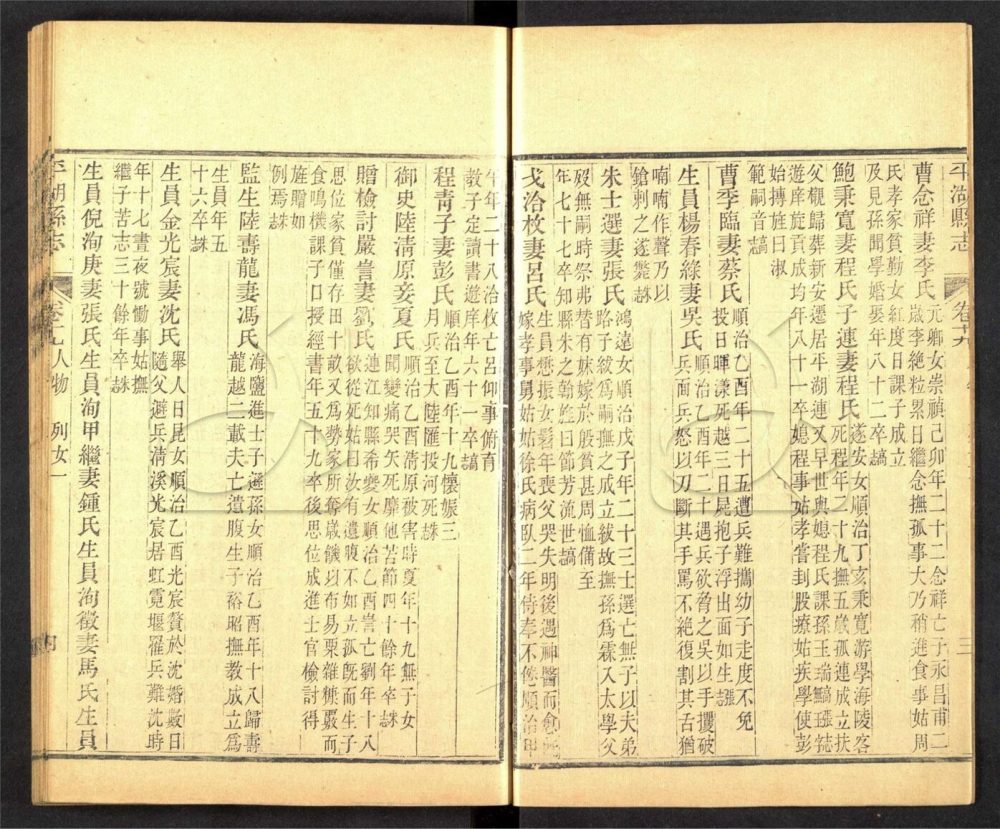 平湖縣志
卷十八
三
曹念祥妻李氏元卿女崇禎己卯年二十二念祥亡子永昌甫二
歲李絕粒累日繼念撫孤事大乃稍進食事姑周
氏孝家貧勤女紅度日課子成立
及見孫聞學婚娶年八十二卒譑
鮑秉寬妻程氏子連妻程氏遂安女順治丁亥秉寬游學海陵客
死程年二十九撫五歲孤連成立扶
父櫬歸葬新安遷居平湖連又早世與媳程氏課孫玉端
遊庠旋貢成均年八十一卒媳程事姑孝嘗刲股療姑疾學使彭
始摶旌曰淑
範嗣音譑
曹季臨妻蔡氏順治乙酉年二十五遭兵難攜幼子走度不免
投日暉漾死越三日屍抱子浮出面如生
生員楊春綠妻吳氏順治乙酉年二十遇兵欲脅之吳以手攫破
兵面兵怒以刀斷其手罵不絕復割其舌猶
喃喃作聲乃以
鎗剌之遂斃
朱士選妻張氏鴻遠女順治戊子年二十三士選亡無子以夫弟
路子紱為嗣撫之成立紱故撫孫為霖入太學父
歿無嗣時祭弗替有妹嫁於殷貧甚周恤備至
年七十七卒知縣朱之翰旌曰節芳流世譑
戈洽枚妻呂氏生員懋振女髫年喪父哭失明後遇神醫而愈
嫁孝事舅姑姑徐氏病臥二年侍奉不倦順治甲
午年二十八洽枚亡呂仰事俯育
教子定讀書遊庠年六十一卒譑
程靑子妻彭氏順治乙酉年十九懷娠三
月兵至大陸匯投河死
御史陸淸原妾夏氏順治乙酉淸原被害時夏年十九無子女
聞變痛哭矢死靡他苦節四十餘年卒
贈檢討嚴訔妻劉氏連江知縣希夔女順治乙酉訔亡劉年十八
欲從死姑曰汝有遺腹不如立孤旣而生子
思位家貧僅存田十畝又為勢家所奪歲饑以布易粟雜糠覈而
食鳴機課子口授經書年五十九卒後思位成進士官檢討得
旌贈如
例焉
監生陸壽龍妻馮氏海鹽進士子遜孫女順治乙酉年十八歸壽
龍越二載夫亡遺腹生子裕昭撫教成立為
生員年五
十六卒
生員金光宸妻沈氏舉人日昆女順治乙酉光宸贅於沈婚數日
隨父避兵淸溪光宸居虹霓堰罹兵難沈時
年十七晝夜號慟事姑撫
繼子苦志三十餘年卒
生員倪洵庚妻張氏生員洵甲繼妻鍾氏生員洵徵妻馬氏生員
平湖縣志
卷十八
人物
列女一